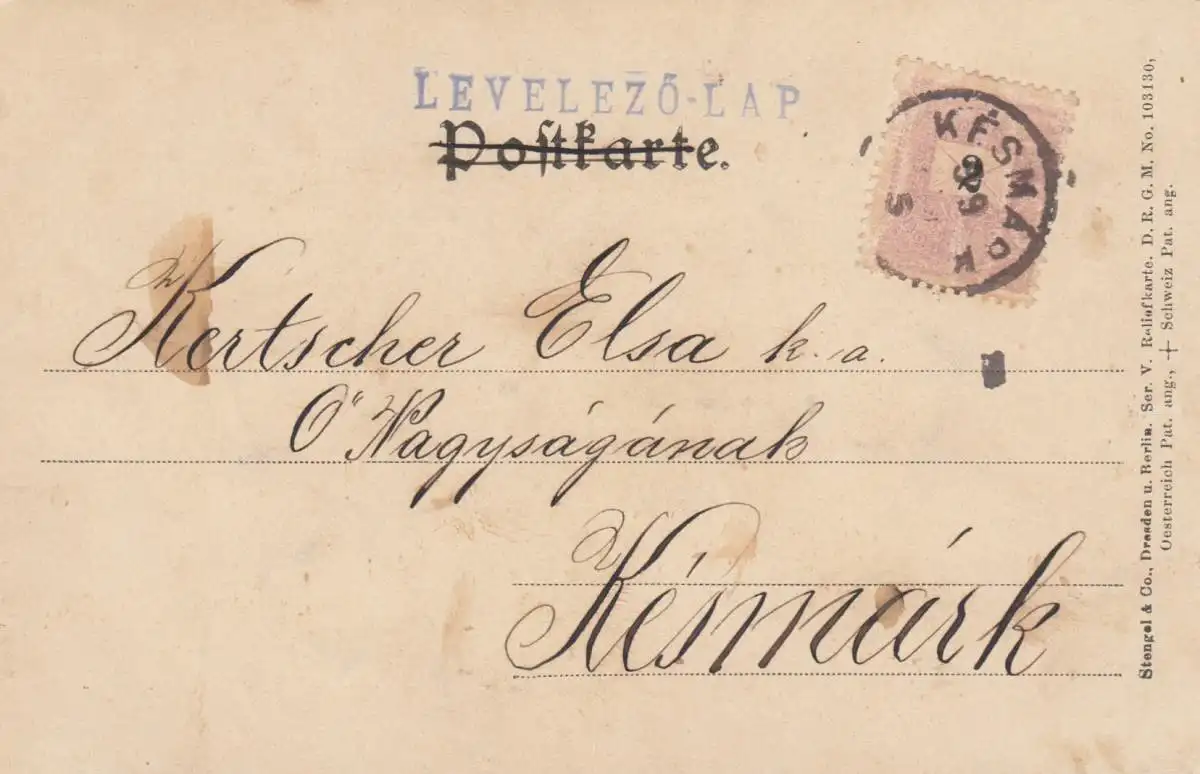 LEVELEZŐ-LAP
Postkarte.
KÉSMÁRK
Kertscher Elsa k. a.
Ő Nagyságának
Késmárk
Stengel & Co., Dresden u. Berlin. Ser. V. Reliefkarte. D. R. G. M. No. 103130,
Oesterreich Pat. ang., Schweiz Pat. ang.